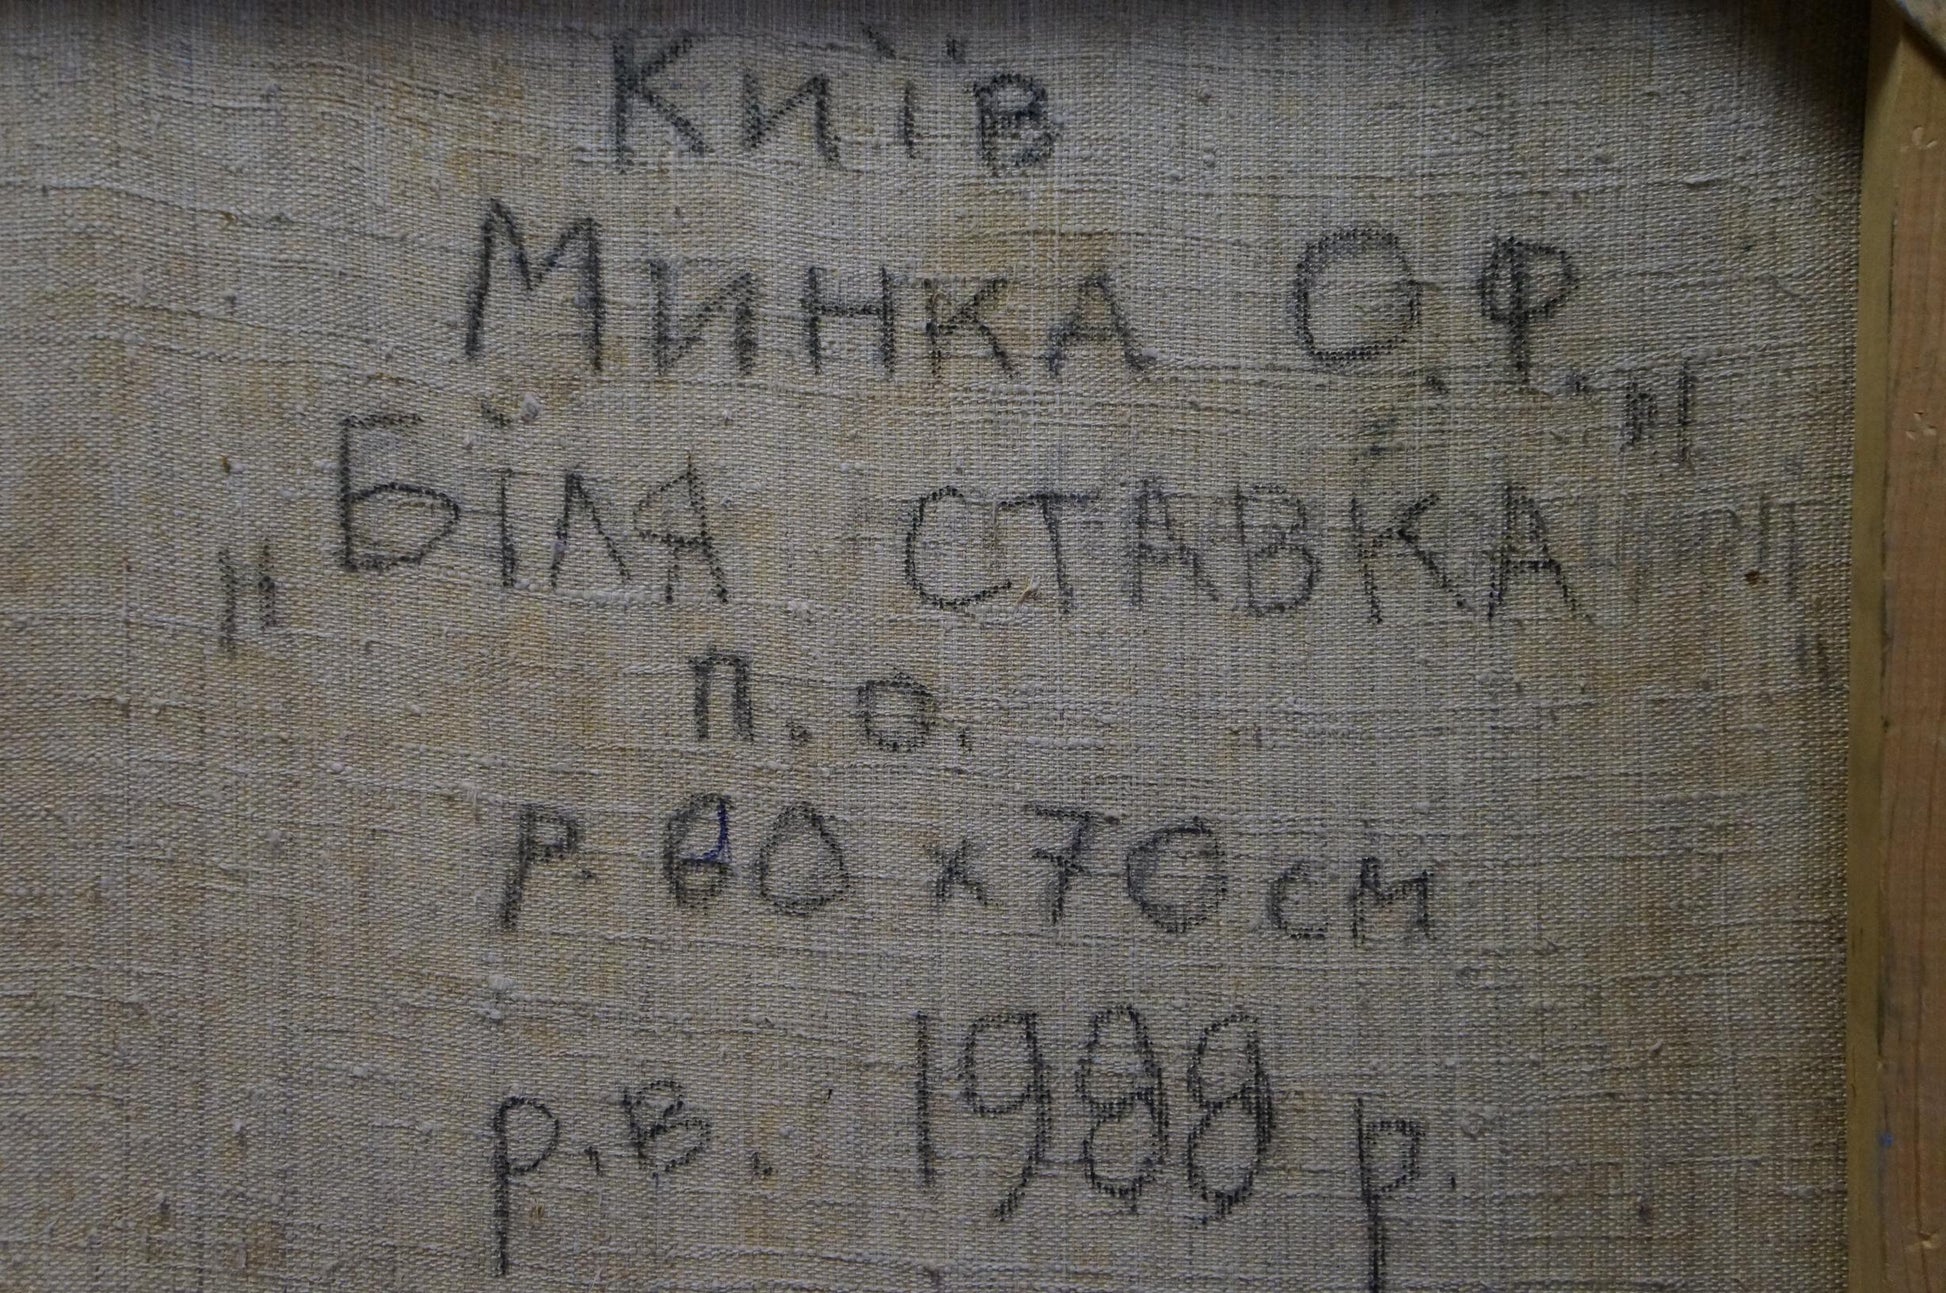 Київ
Минка О.Ф.
"Біля ставка"
п.о.
р. 60 х 70 см
р.в. 1988 р.